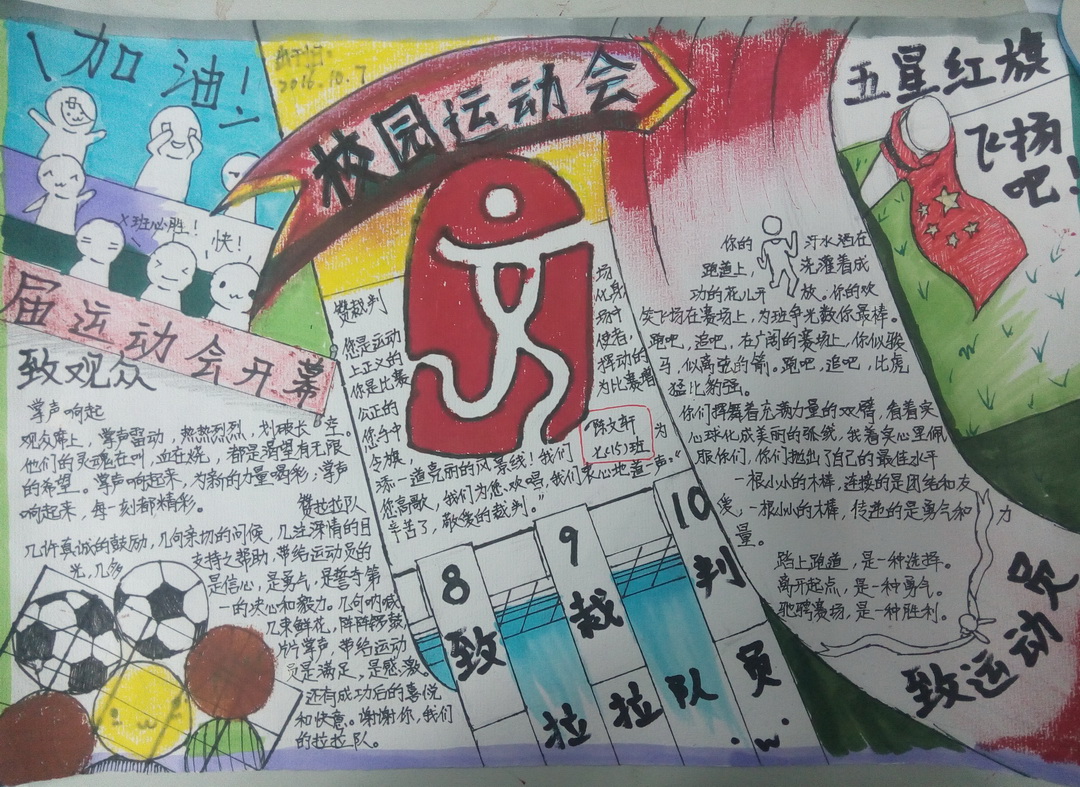 加油！
2016.10.7
校园运动会
五星红旗
飞扬
吧！
X班必胜！
快！
届运动会开幕
致观众
掌声响起
观众席上，掌声雷动，热热烈烈，划破长空。
他们的灵魂在叫，血在烧，都是渴望有无限
的希望。掌声响起来，为新的力量喝彩；掌声
响起来，每一刻都精彩。
赞拉拉队
几许真诚的鼓励，几何亲切的问候，几注深情的目
光，几多
支持之帮助，带给运动员的
是信心，是勇气，是誓夺第
一的决心和毅力。几何呐喊，
几束鲜花，阵阵锣鼓，
片片掌声，带给运动
员是满足，是感激。
还有成功后的喜悦
和快意。谢谢你，我们
的拉拉队。
赞裁判
您是运动场
上正义的化身
你是比赛场中
公正的使者，
您手中挥动的
令旗，为比赛增
添一道亮丽的风景线！我们为
您高歌，我们为您欢唱，我们衷心地道一声：“
辛苦了，敬爱的裁判。”
陈文轩
七(15)班
你的汗水洒在
跑道上，浇灌着成
功的花儿开放。你的欢
笑飞扬在赛场上，为班争光数你最棒。
跑吧，追吧，在广阔的赛场上，你似骏
马，似离弦的箭。跑吧，追吧，比虎
猛比豹强。
你们挥舞着充满力量的双臂，看着实
心球化成美丽的弧线，我着实心里佩
服你们，你们抛出了自己的最佳水平
一根小小的木棒，连接的是团结和友
爱，一根小小的木棒，传递的是勇气和力
量。
踏上跑道，是一种选择。
离开起点，是一种勇气。
驰骋赛场，是一种胜利。
致运动员
8 9 10
致裁判员
拉拉队